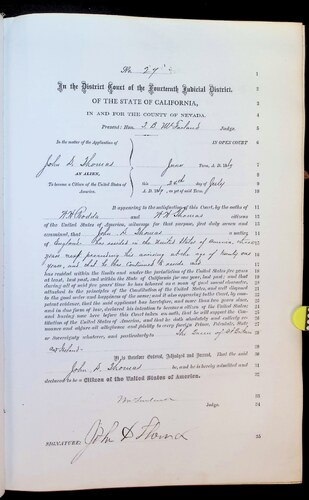 No. 27
1
In the District Court of the Fourteenth Judicial District,
2
OF THE STATE OF CALIFORNIA,
3
IN AND FOR THE COUNTY OF NEVADA.
4
Present: Hon. T. B. McFarland Judge.
5
In the matter of the Application of
IN OPEN COURT
6
John S. Thomas
June Term, A. D. 1869
7
AN ALIEN,
8
To become a Citizen of the United States of
this 24th day of July
9
America.
A. D. 1869, in part of said Term.
10
It appearing to the satisfaction of this Court, by the oaths of
11
W. H. Rodda and W. H. Thomas citizens
12
of the United States of America, witnesses for that purpose, first duly sworn and
13
examined, that John S. Thomas a native
14
of England has resided in the United States of America, three
years next preceding his arriving at the age of twenty one
years, and that he has continued to reside
has resided within the limits and under the jurisdiction of the United States five years
at least, last past, and within the State of California for one year, last past; and that
15
during all of said five years' time he has behaved as a man of good moral character,
attached to the principles of the Constitution of the United States, and well disposed
16
to the good order and happiness of the same; and it also appearing to this Court, by com-
petent evidence, that the said applicant has heretofore, and more than two years since,
17
and in due form of law, declared his intention to become a citizen of the United States;
and having now here before this Court taken an oath, that he will support the Con-
18
stitution of the United States of America, and that he doth absolutely and entirely re-
nounce and abjure all allegiance and fidelity to every foreign Prince, Potentate, State
19
or Sovereignty whatever, and particularly to The Queen of Gt Britain
and Ireland.
20
It is therefore Ordered, Adjudged and Decreed, That the said
21
John S. Thomas be, and he is hereby admitted and
22
declared to be a Citizen of the United States of America.
23
McFarland
Judge.
24
SIGNATURE:
25